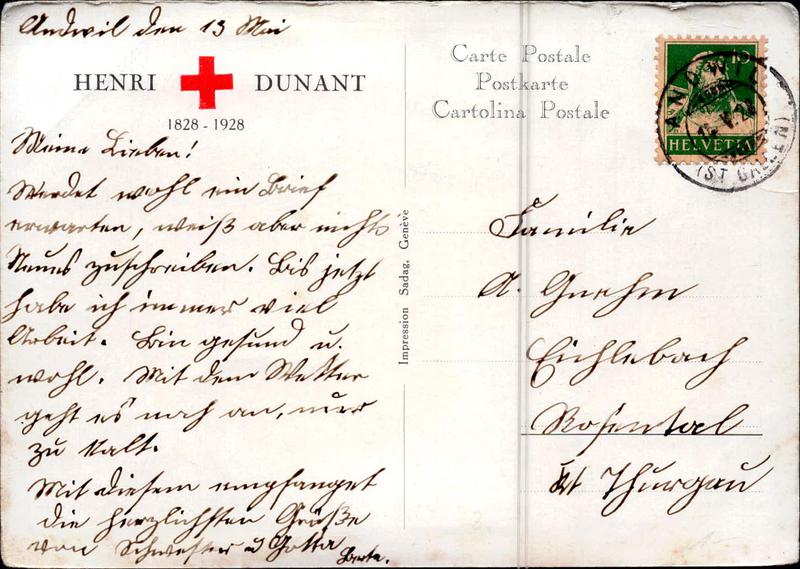 Andwil den 13 Mai
HENRI DUNANT
1828 - 1928
Meine Lieben!
Werdet wohl ein Brief
erwarten, weiß aber nichts
Neues zuschreiben. Bis jetzt
habe ich immer viel
Arbeit. Bin gesund u.
wohl. Mit dem Wetter
geht es noch an, nur
zu kalt.
Mit diesem empfanget
die herzlichsten Grüße
von Schwester u Gotta
Berta.
Impression Sadag, Genève
Carte Postale
Postkarte
Cartolina Postale
10
HELVETIA
ANDWIL
(ST. GALLEN)
Familie
A. Gnehm
Eichlebach
Rosental
Kt Thurgau